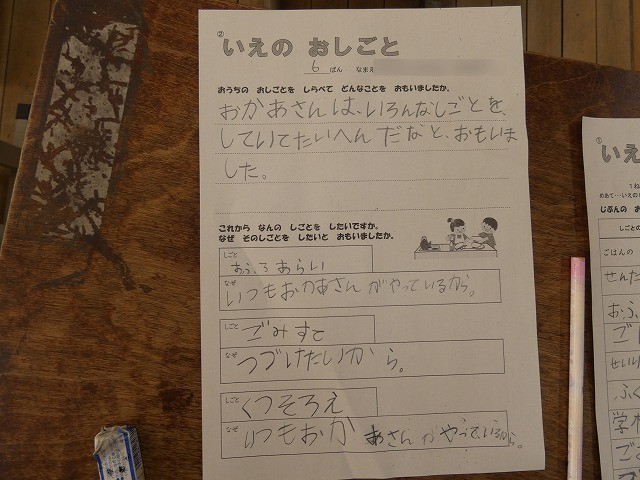 ②
いえの おしごと
6 ばん なまえ
おうちの おしごとを しらべて どんなことを おもいましたか。
おかあさんは、いろんなしごとを、
していてたいへんだなと、おもいま
した。
これから なんの しごとを したいですか。
なぜ そのしごとを したいと おもいましたか。
しごと
おふろあらい
なぜ
いつもおかあさんがやっているから。
しごと
ごみすて
なぜ
つづけたいから。
しごと
くつそろえ
なぜ
いつもおかあさんがやっているから。
①
いえ
1ね
めあて…いえの
じぶんの お
しごとの
ごはんの
せんた
おふ
ご
せいり
ふく
学や
ご